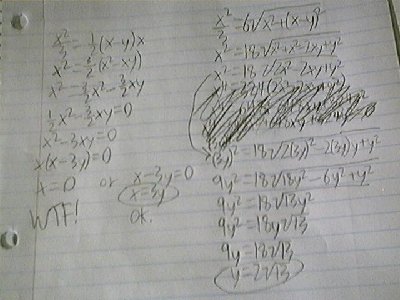 x²/3 = 1/2(x-y)x
x² = 3/2(x²-xy)
x² = 3/2x² - 3/2xy
1/2x² - 3/2xy = 0
x² - 3xy = 0
x(x-3y) = 0
x = 0 or x-3y = 0
x = 3y
WTF! ok.
x²/3 = 6√x²+(x-y)²
x² = 18√x²+x²-2xy+y²
x² = 18√2x²-2xy+y²
(3y)² = 18√2(3y)²-2(3y)y+y²
9y² = 18√18y²-6y²+y²
9y² = 18√13y²
9y² = 18y√13
9y = 18√13
y = 2√13